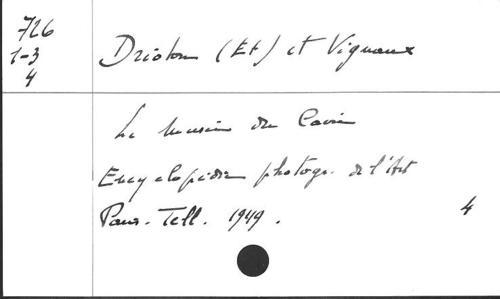 726
1-3
4
Drioton (Et) et Vigneau
Le Musée du Caire
Encyclopédie photogr. de l'Art
Paris. Tell. 1949. 4